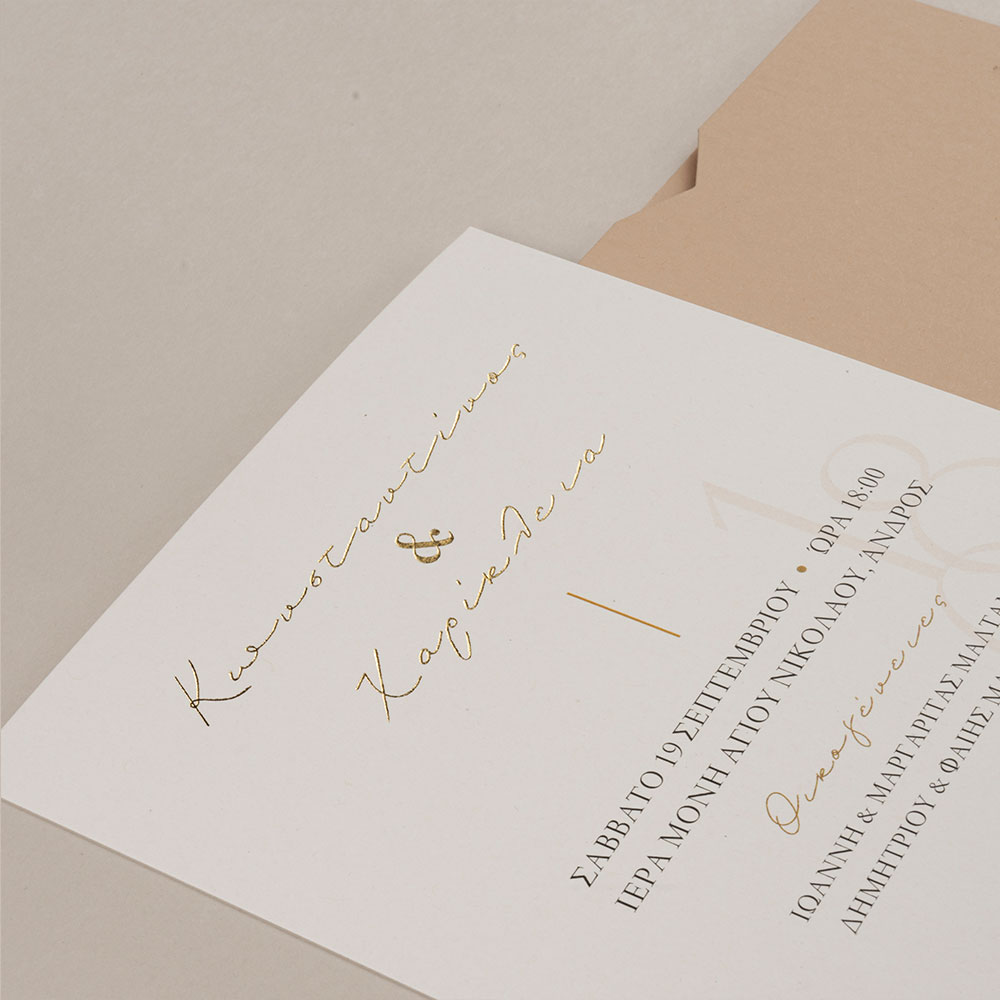 Κωνσταντίνος
&
Χαρίκλεια
18
ΣΑΒΒΑΤΟ 19 ΣΕΠΤΕΜΒΡΙΟΥ • ΏΡΑ 18:00
ΙΕΡΑ ΜΟΝΗ ΑΓΙΟΥ ΝΙΚΟΛΑΟΥ, ΆΝΔΡΟΣ
Οικογένειες
ΙΩΑΝΝΗ & ΜΑΡΓΑΡΙΤΑΣ ΜΑΛΤΑ
ΔΗΜΗΤΡΙΟΥ & ΦΑΙΗΣ